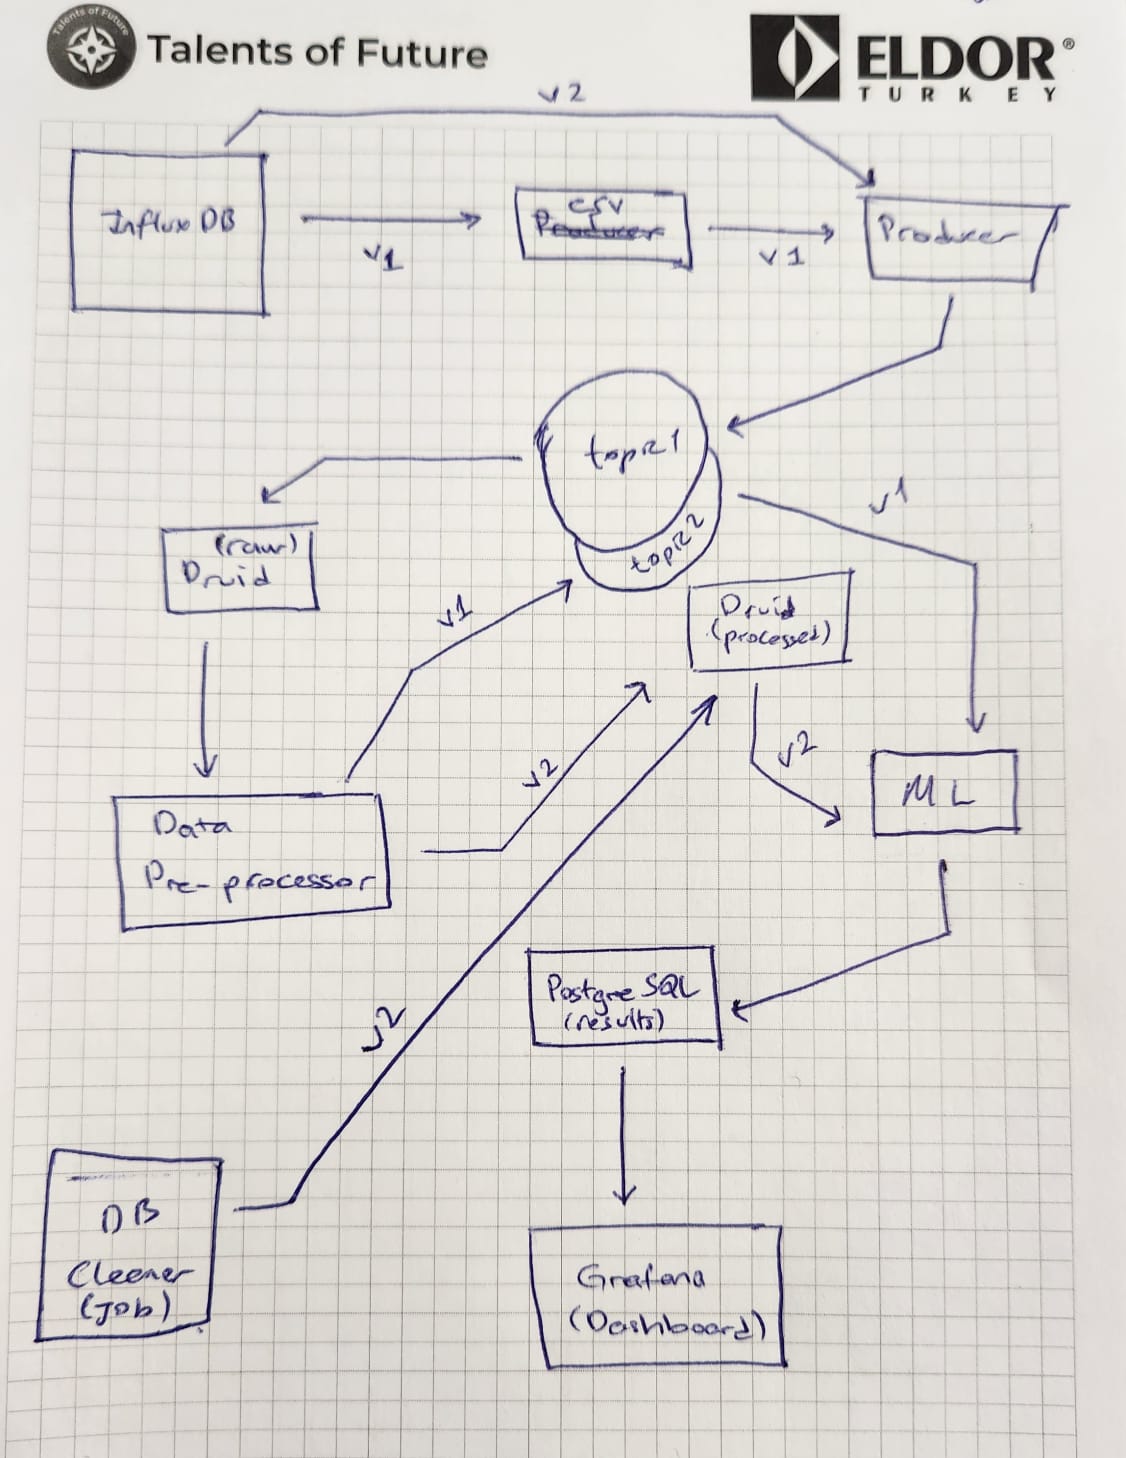 Talents of Future
Talents of Future
ELDOR®
TURKEY
v2
InfluxDB
v1
csv
Producer
v1
Producer
topic1
topic2
v1
(raw)
Druid
v1
Druid
(processed)
v2
v2
ML
Data
Pre-processor
v2
PostgreSQL
(results)
DB
Cleener
(Job)
Grafana
(Dashboard)